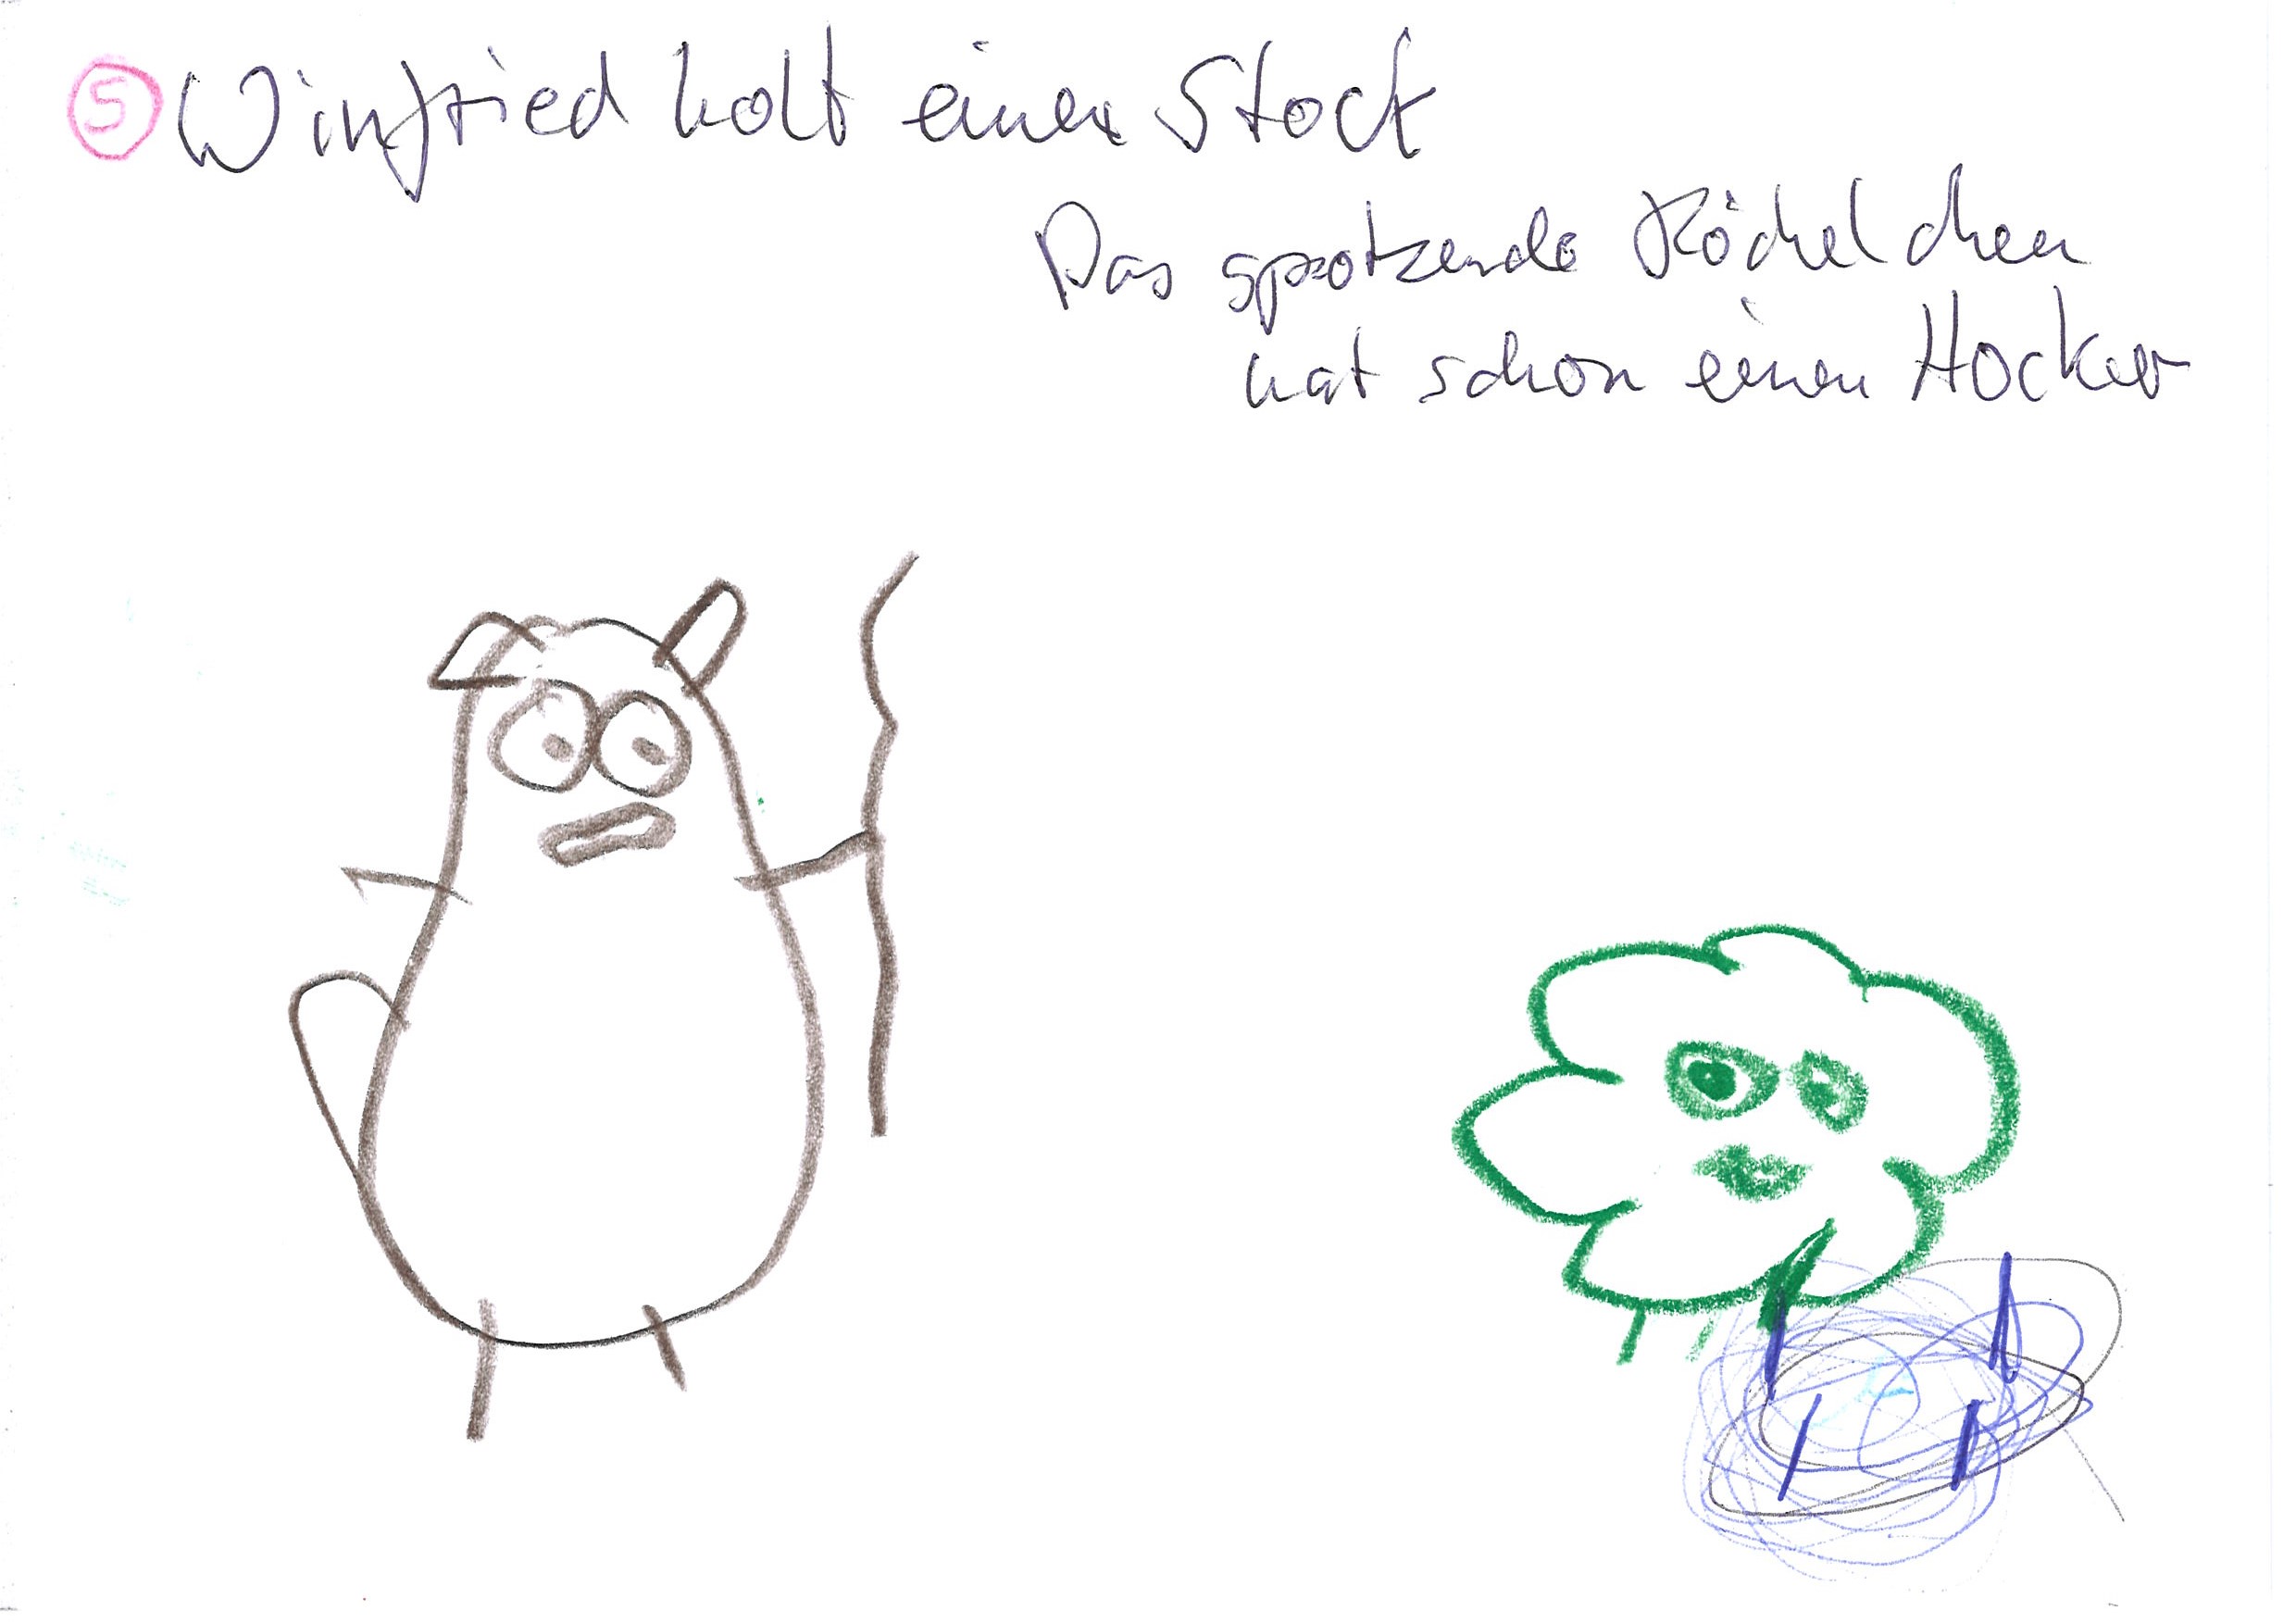 5 Winfried holt einen Stock
Das sprotzende Röchelchen
hat schon einen Hocker